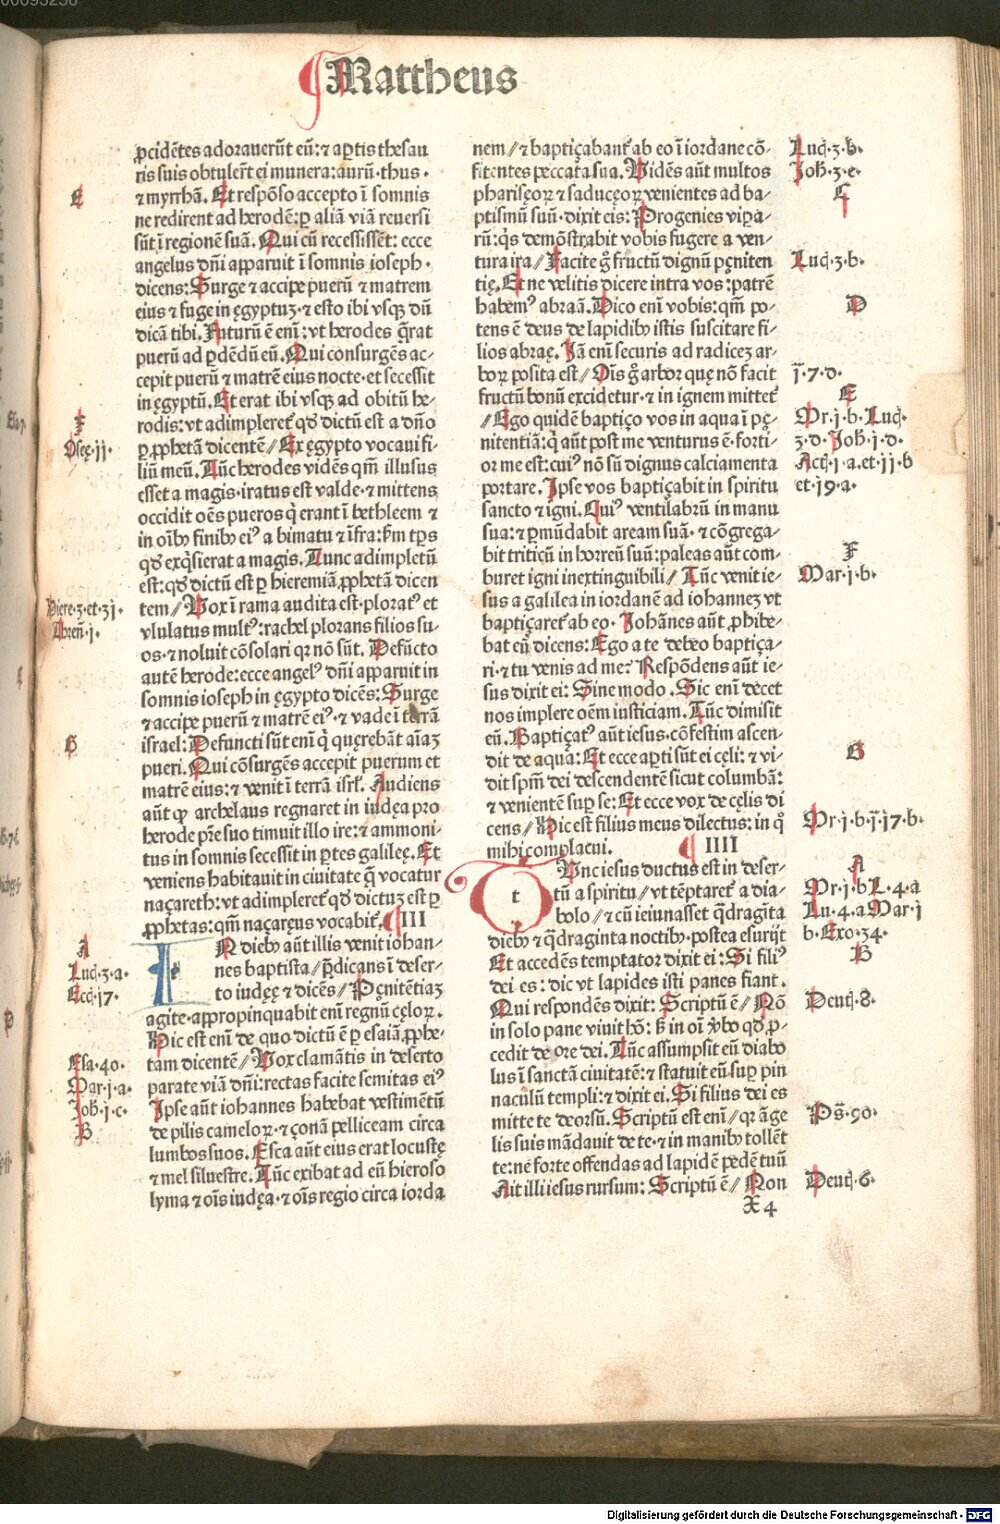 Mattheus
ꝓcidētes adorauerūt eū: ⁊ aꝑtis thesau
ris suis obtulerūt ei munera: aurū·thus·
⁊ myrrhā. Et respōso accepto ī somnis
ne redirent ad herodē: ꝑ aliā viā reuersi
sūt ī regionē suā. Qui cū recessissēt: ecce
angelus dn̄i apparuit ī somnis ioseph·
dicens: Surge ⁊ accipe puerū ⁊ matrem
eius ⁊ fuge in ęgyptuꝫ·⁊ esto ibi vsqꝫ dū
dicā tibi. Futurū ē enī: vt herodes q̄rat
puerū ad ꝑdēdū eū. Qui consurgēs ac-
cepit puerū ⁊ matrē eius nocte·et secessit
in ęgyptū. Et erat ibi vsqꝫ ad obitū he-
rodis: vt adimpleret᷑ qd̓ dictū est a dn̄o
ꝑ ꝓphetā dicentē/ Ex ęgypto vocaui fi-
liū meū. Tūc herodes vidēs qm̄ illusus
esset a magis·iratus est valde·⁊ mittens
occidit oēs pueros q̇ erant ī bethleem ⁊
in oībꝫ finibꝫ eiꝰ a bimatu ⁊ īfra: ẜm tꝑs
qd̓ exq̇sierat a magis. Tunc adimpletū
est: qd̓ dictū est ꝑ hieremiā ꝓphetā dicen
tem/ Vox ī rama audita est·ploratꝰ et
vlulatus multꝰ: rachel plorans filios su-
os·⁊ noluit cōsolari qꝛ nō sūt. Defūcto
autē herode: ecce angelꝰ dn̄i apparuit in
somnis ioseph in ęgypto dicēs: Surge
⁊ accipe puerū ⁊ matrē eiꝰ·⁊ vade ī terrā
israel: Defuncti sūt enī q̇ quęrebāt aīaꝫ
pueri. Qui cōsurgēs accepit puerum et
matrē eius: ⁊ venit ī terrā isrl̓. Audiens
aūt ꝙ archelaus regnaret in iudęa pro
herode pr̄e suo timuit illo ire: ⁊ ammoni-
tus in somnis secessit in ꝑtes galileę. Et
veniens habitauit in ciuitate q̄ vocatur
naçareth: vt adimpleret᷑ qd̓ dictuꝫ est ꝑ
ꝓphetas: qm̄ naçaręus vocabit᷑. III
IN diebꝫ aūt illis venit iohan-
nes baptista/ p̄dicans ī deser-
to iudęę ⁊ dicēs/ Pęnitētiaꝫ
agite·appropinquabit enī regnū cęloꝝ.
Hic est enī de quo dictū ē ꝑ esaiā ꝓphe-
tam dicentē/ Vox clamātis in deserto
parate viā dn̄i: rectas facite semitas eiꝰ
Ipse aūt iohannes habebat vestimētū
de pilis cameloꝝ·⁊ çonā pelliceam circa
lumbos suos. Esca aūt eius erat locustę
⁊ mel siluestre. Tūc exibat ad eū hieroso
lyma ⁊ oīs iudęa·⁊ oīs regio circa iorda
E
F
Oseę·ij·
Hiere·3·et·31·
Thren̄·j·
G
A
Lucę·3·a·
Eccī·17·
Esa·40·
Mar·j·a·
Joh·j·c·
B
nem/ ⁊ baptiçabant᷑ ab eo ī iordane cō-
fitentes peccata sua. Vidēs aūt multos
phariseoꝝ ⁊ saduceoꝝ venientes ad ba-
ptismū suū·dixit eis: Progenies viꝑa-
rū: q̇s demōstrabit vobis fugere a ven-
tura ira/ Facite g̊ fructū dignū pęniten
tię. Et ne velitis dicere intra vos: patrē
habemꝰ abraā. Dico enī vobis: qm̄ po-
tens ē deus de lapidibꝫ istis suscitare fi-
lios abraę. Iā enī securis ad radiceꝫ ar-
boꝝ posita est/ Oīs g̊ arbor quę nō facit
fructū bonū excidetur·⁊ in ignem mittet᷑
/ Ego quidē baptiço vos in aqua ī pę-
nitentiā: q̇ aūt post me venturus ē·forti-
or me est: cuiꝰ nō sū dignus calciamenta
portare. Ipse vos baptiçabit in spiritu
sancto ⁊ igni. Cuiꝰ ventilabrū in manu
sua: ⁊ ꝑmūdabit aream suā·⁊ cōgrega-
bit triticū in horreū suū: paleas aūt com-
buret igni inextinguibili/ Tūc venit ie-
sus a galilea in iordanē ad iohanneꝫ vt
baptiçaret᷑ ab eo· Johānes aūt ꝓhibe-
bat eū dicens: Ego a te debeo baptiça-
ri·⁊ tu venis ad me? Respōdens aūt ie-
sus dixit ei: Sine modo. Sic enī decet
nos implere oēm iusticiam. Tūc dimisit
eū. Baptiçatꝰ aūt iesus·cōfestim ascen-
dit de aqua: Et ecce aꝑti sūt ei cęli: ⁊ vi-
dit spm̄ dei descendentē sicut columbā:
⁊ venientē suꝑ se: Et ecce vox de cęlis di
cens/ Hic est filius meus dilectus: in q̊
mihi complacui. IIII
Tvnc iesus ductus est in deser-
tū a spiritu/ vt tēptaret᷑ a dia-
bolo/ ⁊ cū ieiunasset q̄dragīta
diebꝫ ⁊ q̄draginta noctibꝫ·postea esurijt
Et accedēs temptator dixit ei: Si filiꝰ
dei es: dic vt lapides isti panes fiant.
Qui respondēs dixit: Scriptū ē/ Nō
in solo pane viuit hō: ẜ in oī v̓bo qd̓ ꝓ-
cedit de ore dei. Tūc assumpsit eū diabo
lus ī sanctā ciuitatē: ⁊ statuit eū suꝑ pin
naculū templi: ⁊ dixit ei. Si filius dei es
mitte te deorsū. Scriptū est enī/ qꝛ āge
lis suis mādauit de te·⁊ in manibꝫ tollēt
te: ne forte offendas ad lapidē pedē tuū
Ait illi iesus rursum: Scriptū ē/ Non
X4
Lucę·3·b·
Joh·3·e·
C
Lucę·3·b·
D
j·7·d·
E
Mr·j·b·Luc̨·
3·d·Joh·j·d·
Actꝭ·j·a·et·ij·b
et·19·a·
F
Mar·j·b·
G
Mr·j·b·ij·17·b·
A
Mr·j·b L·4·a
Lu·4·a Mar·j
b·Exo·34·
B
Deuꝭ·8·
Ps̄·90·
Deuꝭ·6·
Digitalisierung gefördert durch die Deutsche Forschungsgemeinschaft - DFG